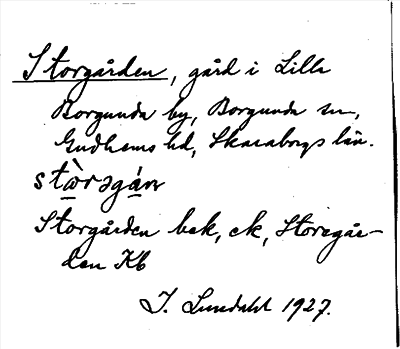 Storgården, gård i Lilla
Borgunda by, Borgunda sn,
Gudhems hd, Skaraborgs län.
stòrəgán
Storgården bek, ek, Storegår-
den Kb
J. Lundahl 1927.